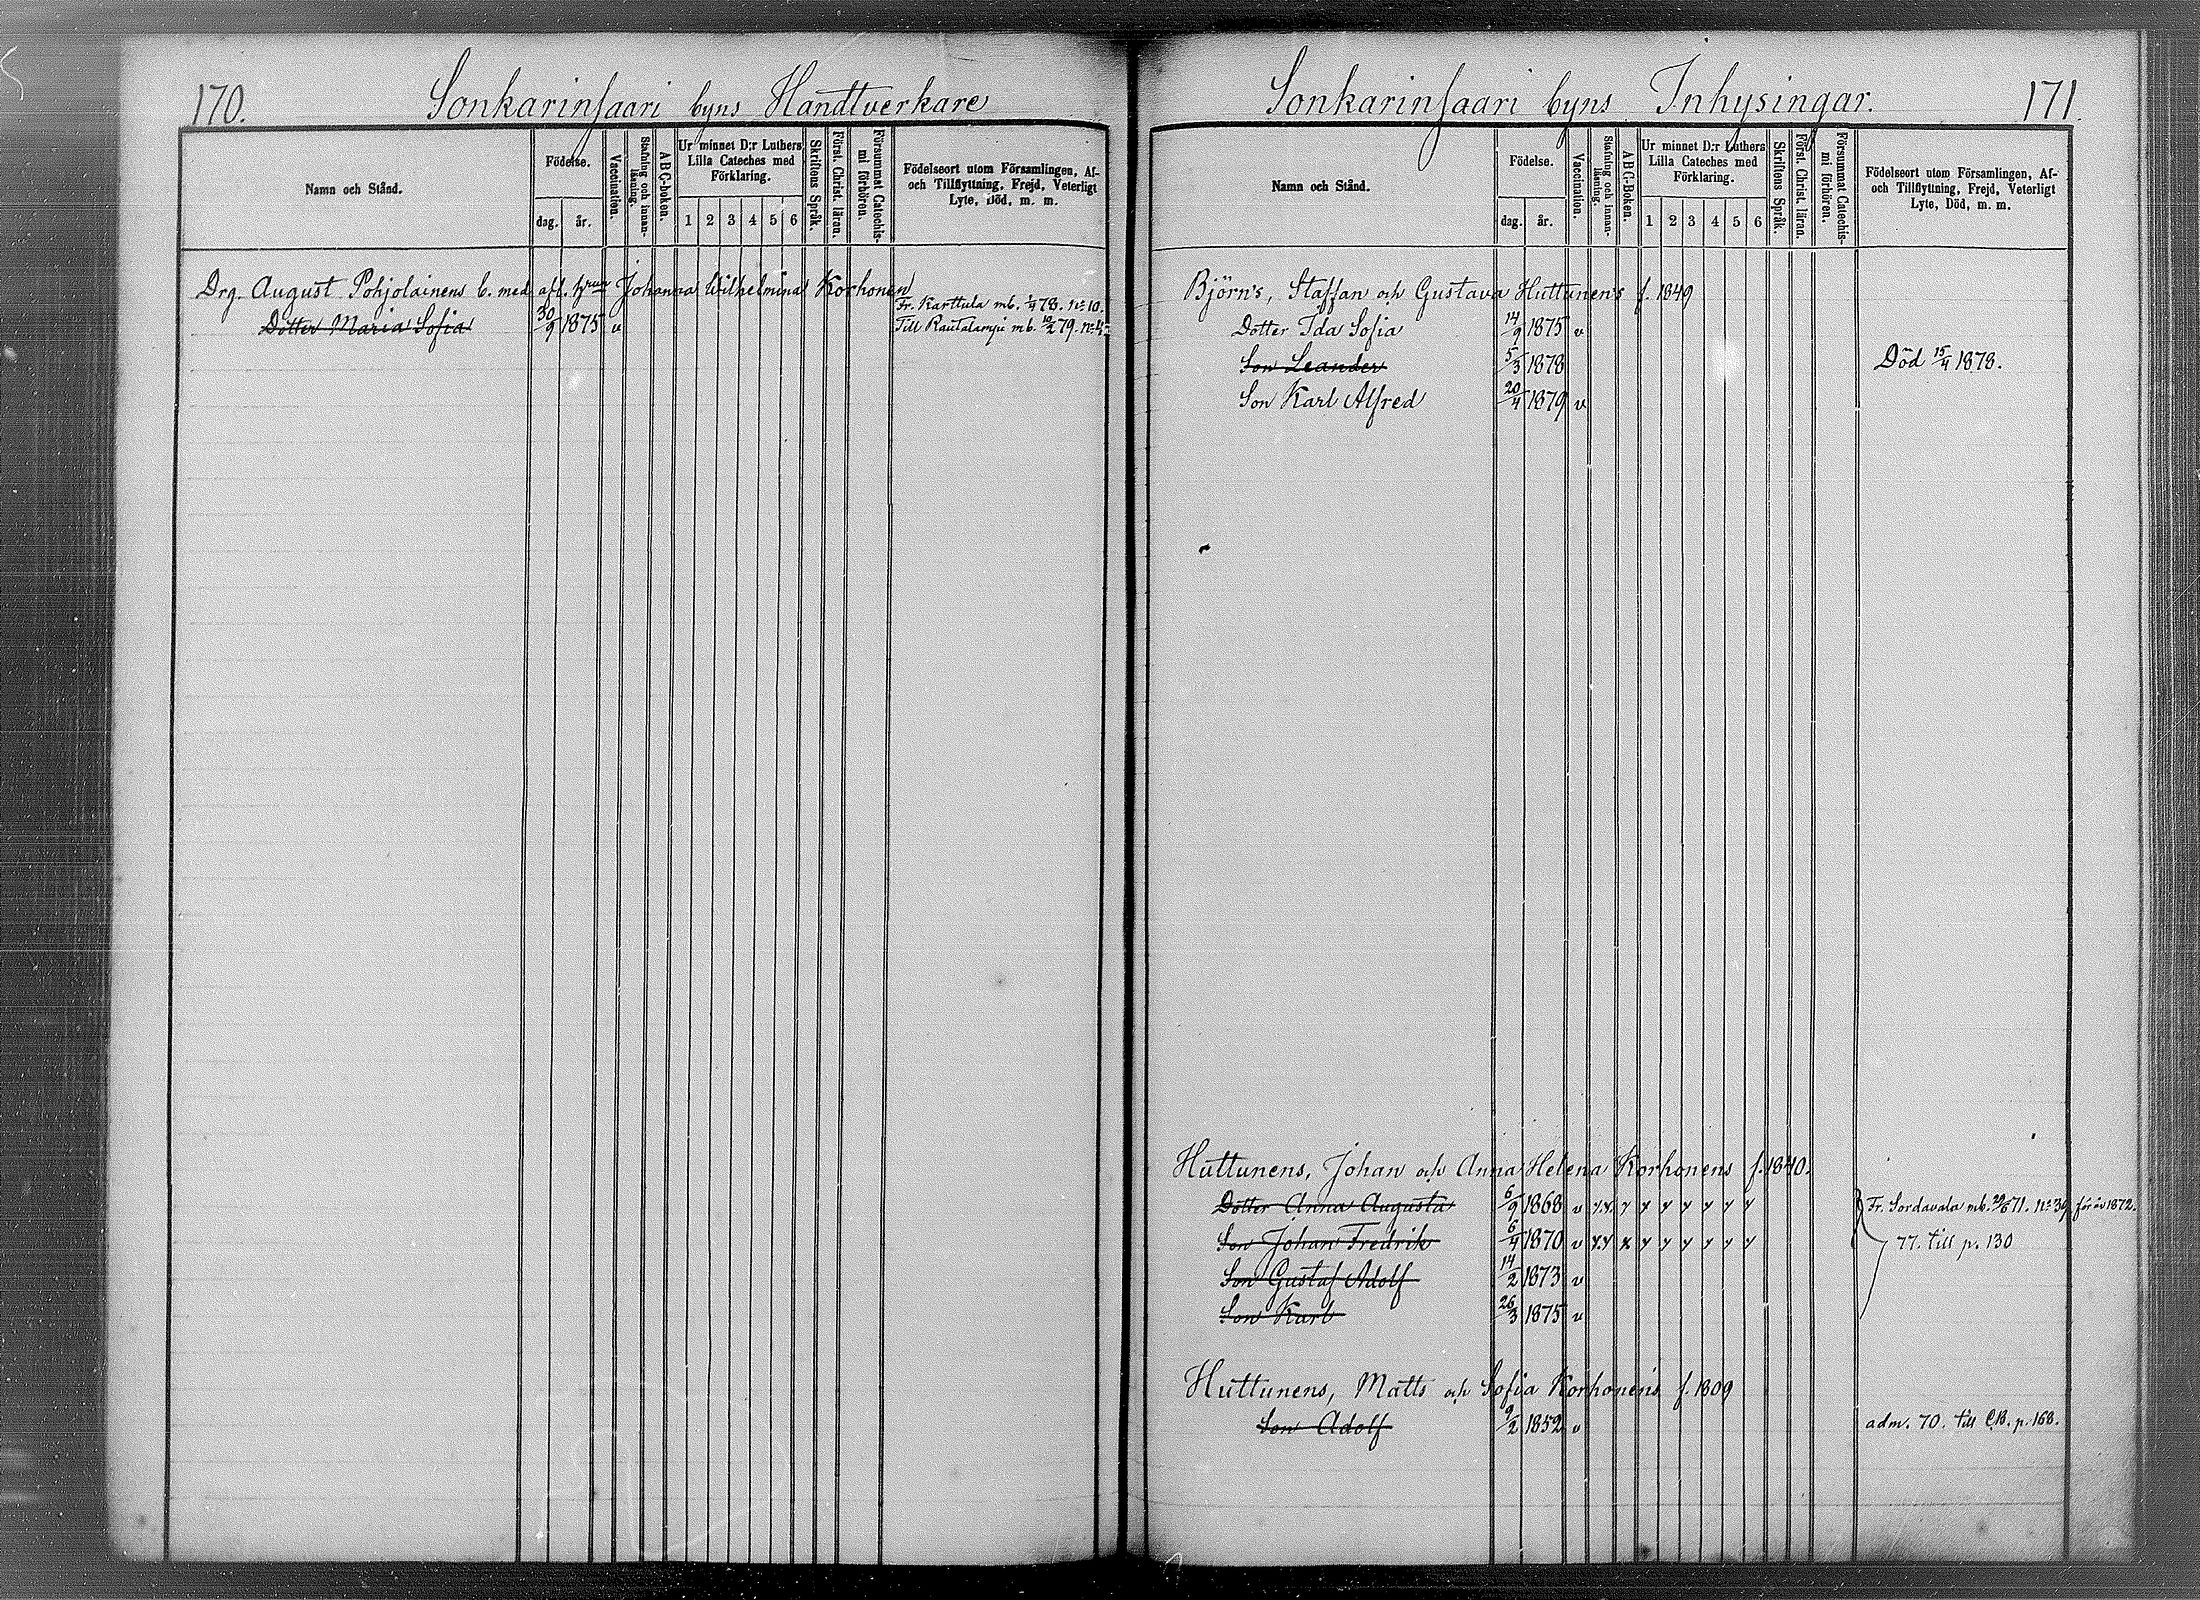 170. Sonkarinsaari byns Handtverkare
Namn och Stånd.
Födelse.
dag. år.
Vaccination.
Stafning och innan-läsning.
ABC-boken.
Ur minnet D:r Luthers
Lilla Cateches med
Förklaring.
1 2 3 4 5 6
Skriftens Språk.
Först. Christ. läran.
Försummat Catechis-mi förhören.
Födelseort utom Församlingen, Af-
och Tillflyttning, Frejd, Veterligt
Lyte, Död, m. m.
Drg. August Pohjolainens b. med afl. hrun Johanna Wilhelmina Korhonen
Fr. Karttula mb. 1/4 78. No 10.
Dotter Maria Sofia 30/9 1875 v Till Rautalampi mb. 10/2 79. No 4.
Sonkarinsaari byns Inhysingar. 171.
Namn och Stånd.
Födelse.
dag. år.
Vaccination.
Stafning och innan-läsning.
ABC-Boken.
Ur minnet D:r Luthers
Lilla Cateches med
Förklaring.
1 2 3 4 5 6
Skriftens Språk.
Först. Christ. läran.
Försummat Catechis-mi förhören.
Födelseort utom Församlingen, Af-
och Tillflyttning, Frejd, Veterligt
Lyte, Död, m. m.
Björn's, Staffan och Gustava Huttunen's f. 1849
Dotter Ida Sofia 14/9 1875 v
Son Leander 5/3 1878 Död 15/4 1878.
Son Karl Alfred 20/4 1879 v
Huttunens, Johan och Anna Helena Korhonens f. 1840.
Dotter Anna Augusta 6/9 1868 v y.y. y y y y y y y Fr. Sordavala mb. 20/6 71. No 39 för år 1872.
Son Johan Fredrik 6/4 1870 v y.y x y y y y y y 77. till p. 130
Son Gustaf Adolf 14/2 1873 v
Son Karl 26/3 1875 v
Huttunens, Matts och Sofia Korhonens f. 1809
Son Adolf 9/2 1852 v adm. 70. till CB. p. 168.